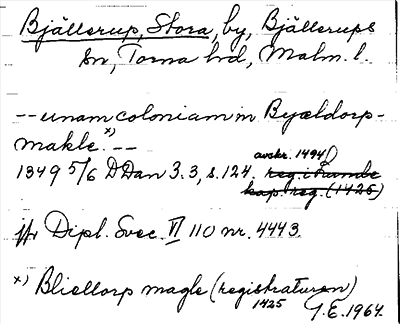 Bjällerup, Stora, by, Bjällerups
sn, Torna hd, Malm. l.
-- unam coloniam in Byældorp-
makle. x) --
avskr. 1494()
1349 5/6 DDan 3:3, s. 124. reg. i Lunde
kap. reg. (1425)
jfr Dipl. Svec. VI 110 nr. 4443.
x) Bliellorp magle (registraturen)
1425
G.E. 1964.